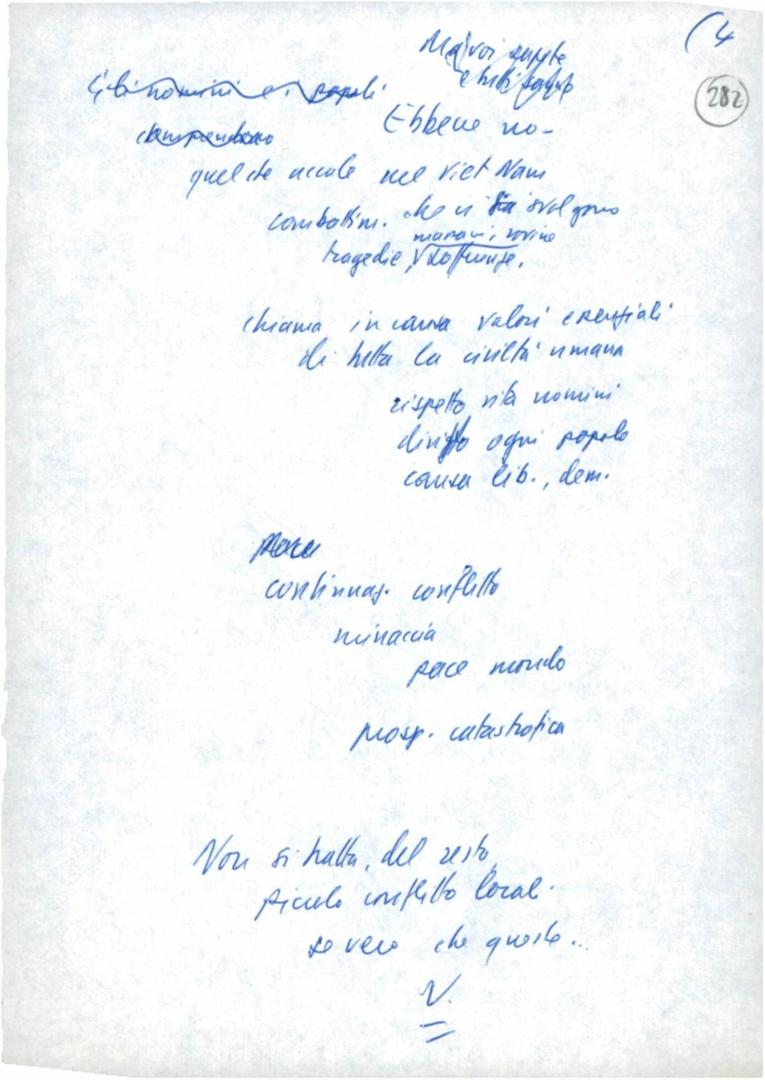 (4
282
Ma voi sapete
e tutti sanno
Gli uomini e i popoli
comprendono
Ebbene no-
quel che accade nel Viet Nam
combattim. che si svolgono
massacri, rovine
tragedie, sofferenze,
chiama in causa valori essenziali
di tutta la civiltà umana
rispetto vita uomini
diritto ogni popolo
causa lib., dem.
pace
continuaz. conflitto
minaccia
pace mondo
prosp. catastrofica
Non si tratta, del resto,
piccolo conflitto local.
se vero che queste..
V.